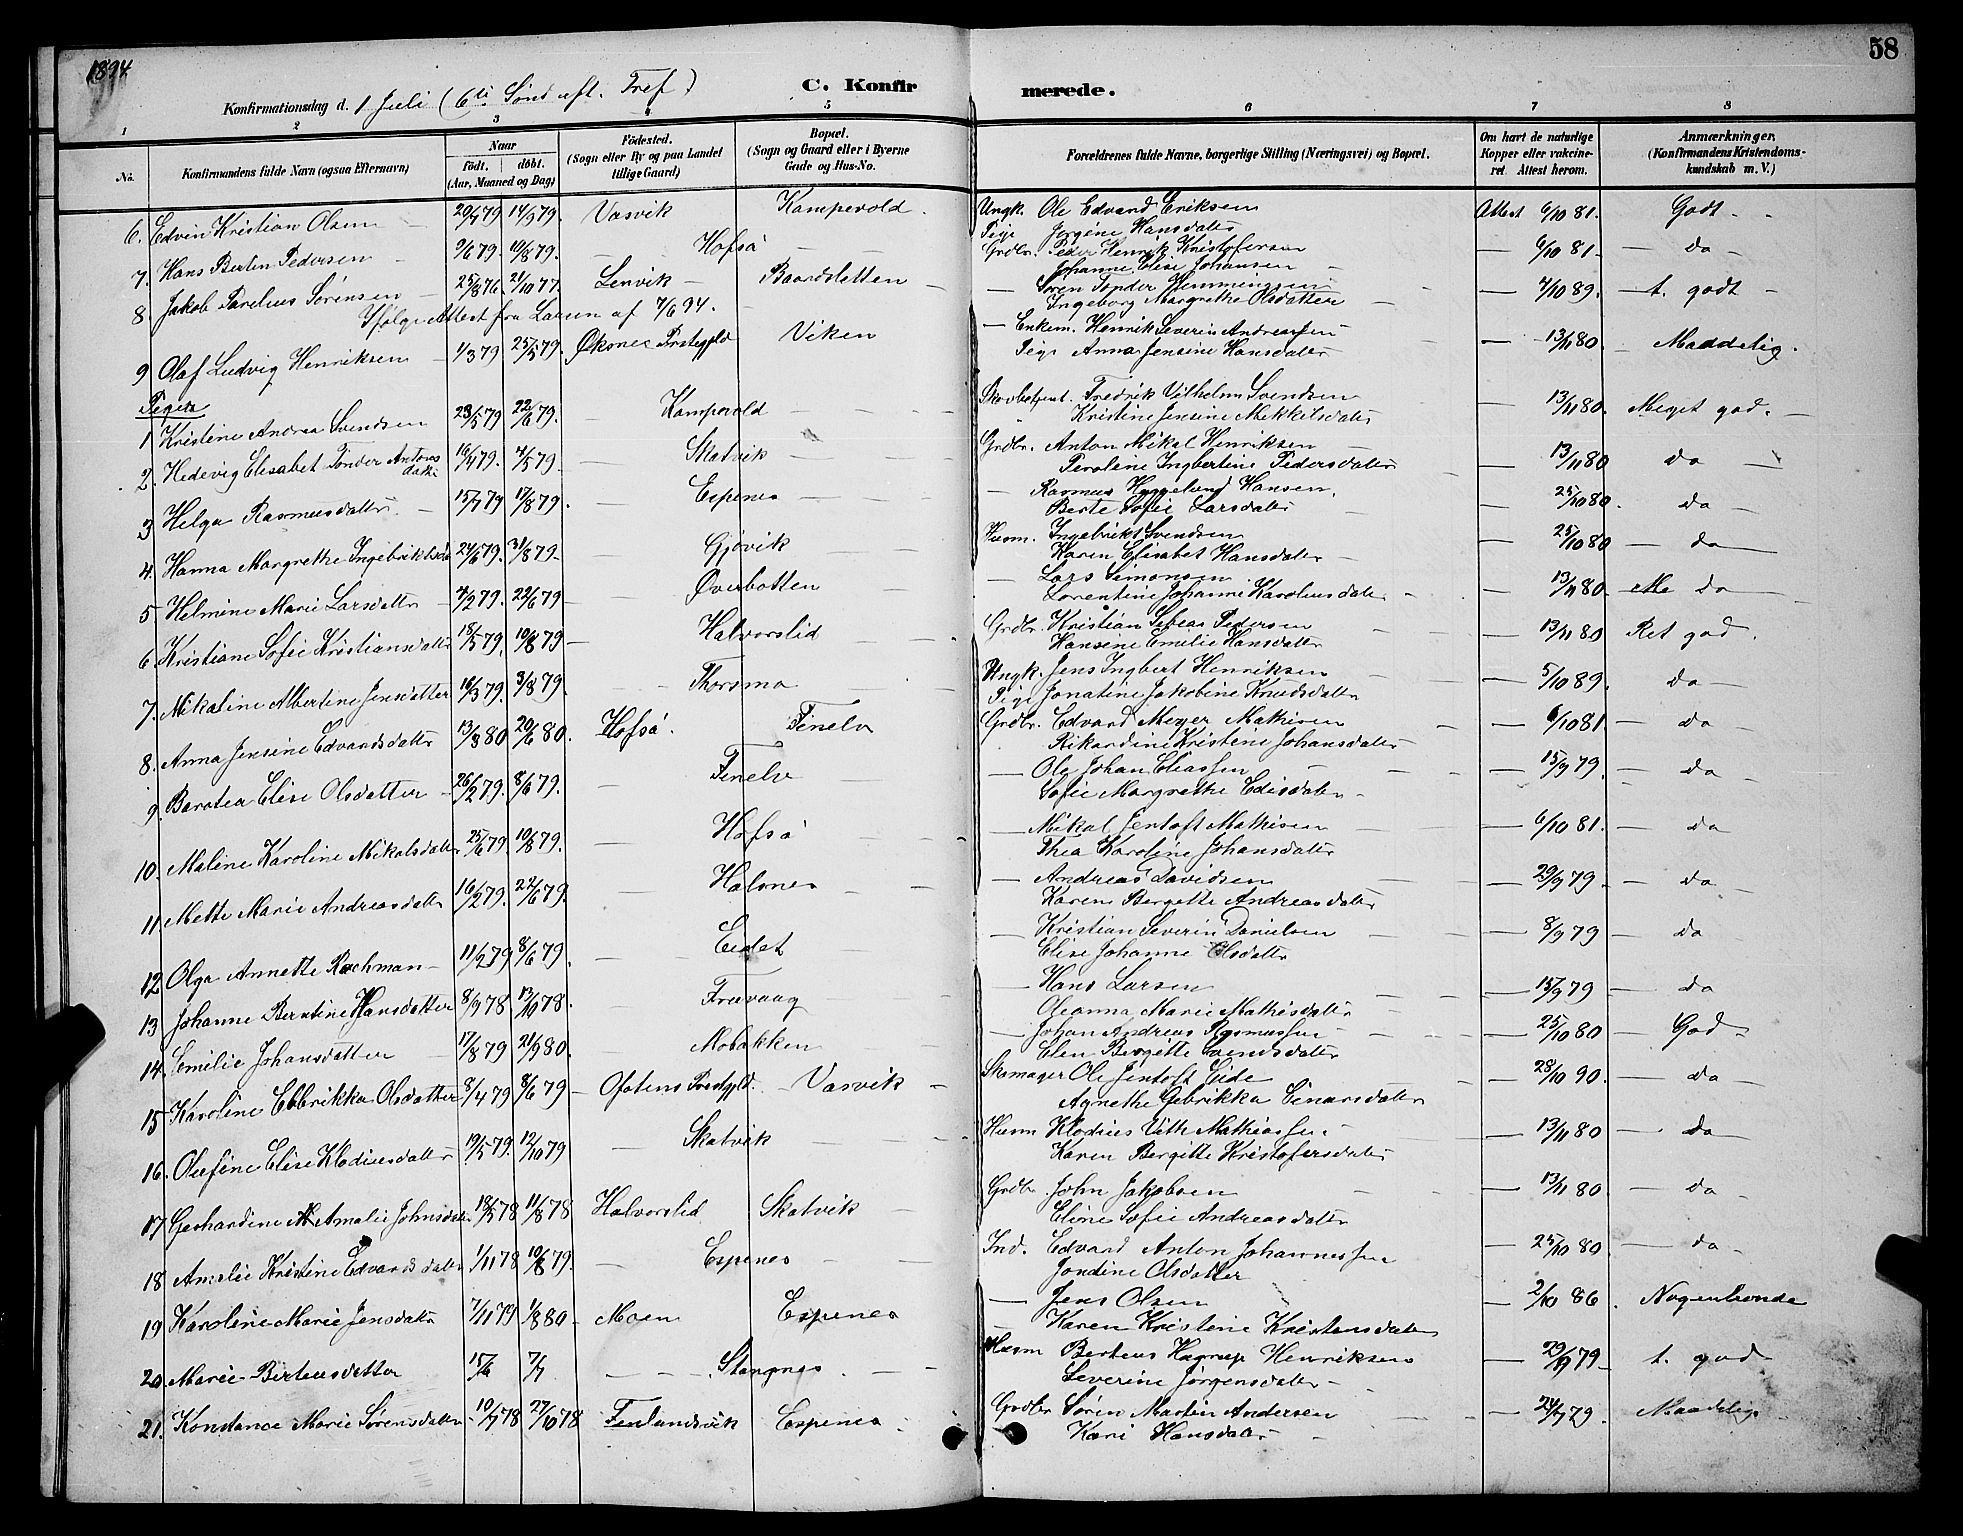 1894
58
C. Konfirmerede.
Konfirmationsdag d. 1 Juli (6te Sønd. aft. Tref)
1 2 3 4 5 6 7 8
No. Konfirmandens fulde Navn (ogsaa Efternavn) Naar født. døbt. (Aar, Maaned og Dag) Fødested. (Sogn eller By og paa Landet tillige Gaard) Bopæl. (Sogn og Gaard eller i Byerne Gade og Hus-No. Forældrenes fulde Navne, borgerlige Stilling (Næringsvei) og Bopæl. Om havt de naturlige Kopper eller vakcineret. Attest herom. Anmærkninger. (Konfirmandens Kristendomskundskab m. V.)
6. Edvin Kristian Olsen 20/7 79 14/9 79. Vasvik Kampevold. Ungk. Ole Edvard Eriksen Attest 6/10 81. Godt
Pige Jørgine Hansdatter
7. Hans Bertin Pedersen 9/6 79. 10/8 79. Hofsö Grdbr. Peder Henrik Kristofersen 6/10 81 do
Johanne Elise Johansen
8. Jakob Parelius Sörensen 25/8 76. 21/10 77. Lenvik Baardsletten Sören Tönder Hemmingsen 4/10 89. t. godt
Ifølge Attest fra Læreren af 7/6 94. Ingeborg Margrethe Olsdatter
9 Olaf Ludvig Henriksen 1/3 79 25/5 79. Øksnes Prstegjld Viken Enkem. Henrik Severin Andreassen 13/11 80. Maadelig.
Pige Anna Jensine Hansdatter
Piger
1 Kristine Andrea Svendsen 23/5 79 22/6 79. Kampevold Fredrik Vilhelm Svendsen 13/11 80. Meget god.
Kristine Jensine Mekkelsdatter
2. Hedevig Elisabet Tönder Antonsdatter 16/4 79. 4/5 79 Skatvik Grdbr. Anton Mikal Henriksen 13/11 80 do
Perolene Ingbertine Pedersdatter
3 Helga Rasmusdatter 15/7 79 17/8 79. Espenes Rasmus Hyggelund Hansen. 25/10 80. do
Berte Sofie Larsdatter
4. Hanna Margrethe Ingebriktsd 24/6 79. 31/8 79. Gjövik Husm. Ingebrikt Svendsen 25/10 80 do
Karen Elisabet Hansdatter
5 Helmine Marie Larsdatter 4/2 79. 22/6 79 Øverbotten Lars Simonsen 13/11 80 do
Lorentine Johanne Karoliusdatter
6. Kristiane Sofie Kristiansdatter 18/5 79. 10/8 79 Halvorslid Grdbr. Kristian Tobias Pedersen 13/11 80 Ret god.
Hansine Emilie Hansdatter
7. Mikaline Albertine Jensdatter 16/3 79. 3/8 79. Thorsmo Ungk. Jens Ingbert Henriksen 5/10 89. do
Pige Jonatine Jakobine Knudsdatter
8. Anna Jensine Edvardsdatter 13/3 80 20/6 80. Hofsö. Finelv Grdbr. Edvard Meyer Mathisen 6/10 81 do
Rikardine Kristine Johansdatter
9 Barolea Elise Olsdatter 26/2 79. 8/6 79. Finelv Ole Johan Eliassen 15/9 79. do
Sofie Margrethe Edisdatter
10. Maline Karoline Mikalsdatter 25/6 79. 10/8 79. Hofsö Mikal Jentoft Mathisen 6/10 81. do
Thea Karoline Johansdatter
11 Mette Marie Andreasdatter 16/2 79. 22/6 79. Halsnes Andreas Davidsen 29/9 79. do
Karen Bergette Andreasdatter
12 Olga Annette Rachman 11/2 79 8/6 79. Eidet Kristian Severin Danielsen 8/9 79 do
Elise Johanne Olsdatter
13 Johanne Berntine Hansdatter 8/9 78 13/10 78. Trævaag Hans Larsen 15/9 79 do
Oleanna Marie Mathisdatter
14. Emilie Johansdatter 17/8 79 21/9 80. Mobakken Johan Andreas Rasmussen 25/10 80 God
Elen Bergitte Evendsdatter
15 Karoline Ebbrikka Olsdatter 8/4 79 8/6 79 Ofotens Prestgjld. Vasvik Skomager Ole Jentoft Eide 28/10 90. do
Agnethe Gebrikka Einarsdatter
16. Olufine Elise Klodiusdatter 19/5 79. 12/10 79 Skatvik Husm Klodius Uth Mathiassen 13/11 80 do
Karen Bergitte Kristofersdatter
17 Gerhardine Amalie Johnsdatter 18/5 78 11/8 78 Halvorslid Skatvik Grdbr. John Jakobsen 13/11 80 do
Eline Sofie Andreasdatter
18 Amalie Kristine Edvardsdatter 1/11 78 10/8 79. Espenes Ind. Edvard Anton Johannessen 25/10 80 do
Jondine Olsdatter
19 Karoline Marie Jensdatter 7/11 79 1/8 80 Moen Espenes Jens Olsen 2/10 86. Nogenlunde
Karen Kristine Kristensdatter
20. Marie Berteusdatter 15/6 7/7 Stangnes Husm Berteus Hagrup Henriksen 29/9 79 t. god
Severine Jörgensdatter
21. Konstance Marie Sörensdatter 10/7 78 27/10 78 Finlandsvik Espenes Grdbr Sören Martin Andersen 24/7 79. Maadelig
Kari Hansdatter